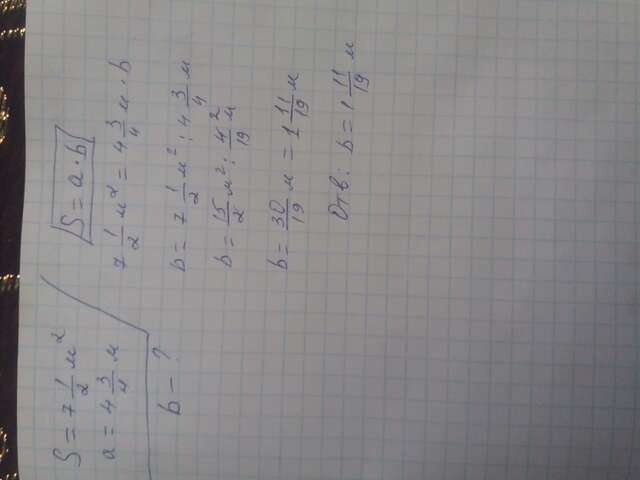 S = 7 1/2 м²
a = 4 3/4 м
b - ?
S = a · b
7 1/2 м² = 4 3/4 м · b
b = 7 1/2 м² : 4 3/4 м
b = 15/2 м² : 4²/19 м
b = 30/19 м = 1 11/19 м
Отв: b = 1 11/19 м